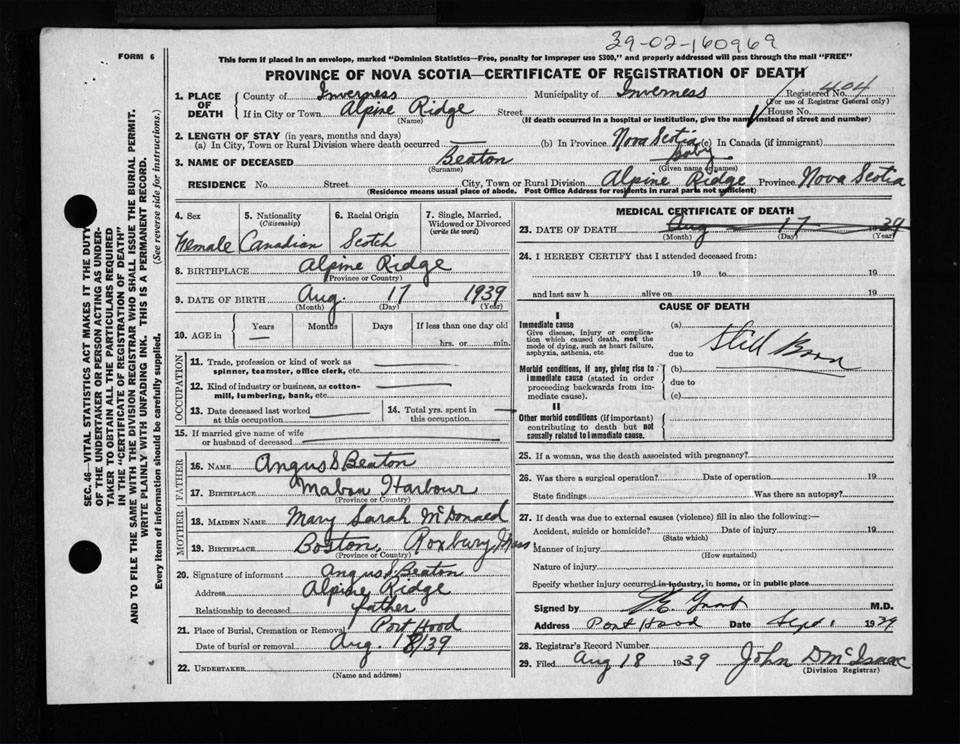 39-02-160969
FORM 6
This form if placed in an envelope, marked "Dominion Statistics—Free, penalty for improper use $300," and properly addressed will pass through the mail "FREE"
PROVINCE OF NOVA SCOTIA—CERTIFICATE OF REGISTRATION OF DEATH
1. PLACE OF DEATH
County of Inverness Municipality of Inverness Registered No. 404
(For use of Registrar General only)
If in City or Town Alpine Ridge Street House No.
(Name) (If death occurred in a hospital or institution, give the name instead of street and number)
2. LENGTH OF STAY (in years, months and days)
(a) In City, Town or Rural Division where death occurred — (b) In Province Nova Scotia (c) In Canada (if immigrant)
3. NAME OF DECEASED Beaton Baby
(Surname) (Given name or names)
RESIDENCE No. Street City, Town or Rural Division Alpine Ridge Province Nova Scotia
(Residence means usual place of abode. Post Office Address for residents in rural parts not sufficient)
4. Sex 5. Nationality (Citizenship) 6. Racial Origin 7. Single, Married, Widowed or Divorced (write the word)
Female Canadian Scotch
8. BIRTHPLACE Alpine Ridge
(Province or Country)
9. DATE OF BIRTH Aug. 17 1939
(Month) (Day) (Year)
10. AGE in Years Months Days If less than one day old
— hrs. or min.
OCCUPATION
11. Trade, profession or kind of work as
spinner, teamster, office clerk, etc.
12. Kind of industry or business, as cotton-
mill, lumbering, bank, etc.
13. Date deceased last worked
at this occupation
14. Total yrs. spent in
this occupation
15. If married give name of wife
or husband of deceased
FATHER
16. NAME Angus S Beaton
17. BIRTHPLACE Mabou Harbour
(Province or Country)
MOTHER
18. MAIDEN NAME Mary Sarah McDonald
19. BIRTHPLACE Boston, Roxbury, Mass
(Province or Country)
20. Signature of informant Angus S. Beaton
Address Alpine Ridge
Relationship to deceased father
21. Place of Burial, Cremation or Removal Port Hood
Date of burial or removal Aug. 18/39
22. UNDERTAKER
(Name and address)
MEDICAL CERTIFICATE OF DEATH
23. DATE OF DEATH Aug 17 39
(Month) (Day) (Year)
24. I HEREBY CERTIFY that I attended deceased from:
19 to 19
and last saw h alive on 19
CAUSE OF DEATH
I
Immediate cause
Give disease, injury or complica-
tion which caused death, not the
mode of dying, such as heart failure,
asphyxia, asthenia, etc.
(a)
due to
Still Born
Morbid conditions, if any, giving rise to
immediate cause (stated in order
proceeding backwards from im-
mediate cause).
(b)
due to
(c)
II
Other morbid conditions (if important)
contributing to death but not
causally related to immediate cause.
25. If a woman, was the death associated with pregnancy?
26. Was there a surgical operation? Date of operation 19
State findings Was there an autopsy?
27. If death was due to external causes (violence) fill in also the following:—
Accident, suicide or homicide? Date of injury 19
(State which)
Manner of injury
(How sustained)
Nature of injury
Specify whether injury occurred in industry, in home, or in public place
Signed by M.D.
Address Port Hood Date Sept. 1 1939
28. Registrar's Record Number
29. Filed Aug 18 1939 John D McIsaac
(Division Registrar)
SEC. 46—VITAL STATISTICS ACT MAKES IT THE DUTY
OF THE UNDERTAKER OR PERSON ACTING AS UNDER-
TAKER TO OBTAIN ALL THE PARTICULARS REQUIRED
IN THE "CERTIFICATE OF REGISTRATION OF DEATH"
AND TO FILE THE SAME WITH THE DIVISION REGISTRAR WHO SHALL ISSUE THE BURIAL PERMIT.
WRITE PLAINLY WITH UNFADING INK. THIS IS A PERMANENT RECORD.
Every item of information should be carefully supplied. (See reverse side for instructions.)